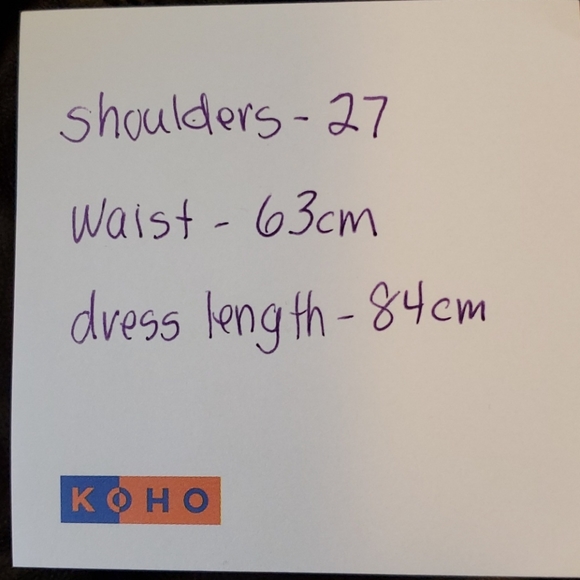 shoulders - 27
waist - 63cm
dress length - 84cm
KOHO